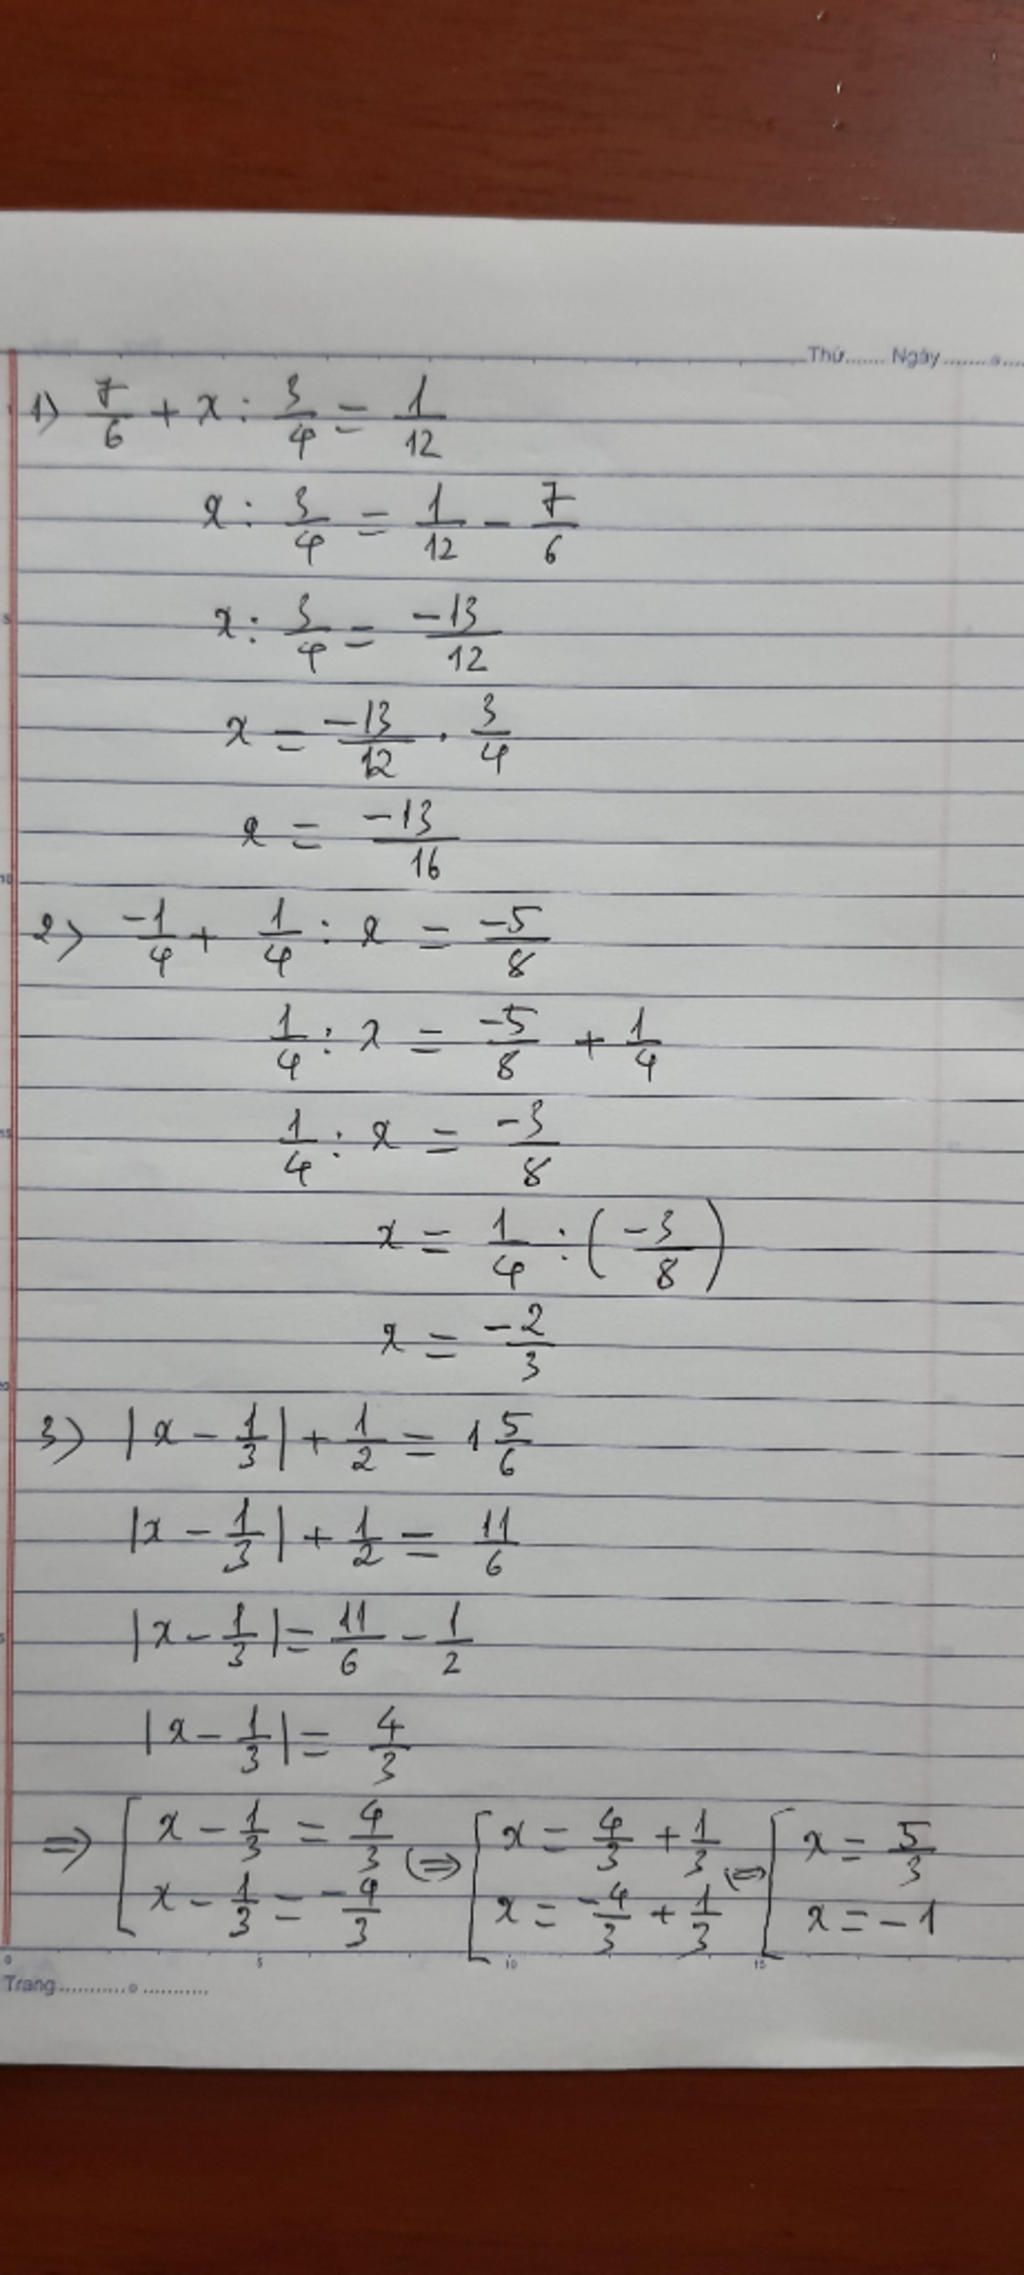 Thứ....... Ngày........o....
1) 7/6 + x : 3/4 = 1/12
x : 3/4 = 1/12 - 7/6
x : 3/4 = -13/12
x = -13/12 . 3/4
x = -13/16
2) -1/4 + 1/4 : x = -5/8
1/4 : x = -5/8 + 1/4
1/4 : x = -3/8
x = 1/4 : (-3/8)
x = -2/3
3) |x - 1/3| + 1/2 = 1 5/6
|x - 1/3| + 1/2 = 11/6
|x - 1/3| = 11/6 - 1/2
|x - 1/3| = 4/3
⇒ [ x - 1/3 = 4/3 (⇒) [ x = 4/3 + 1/3 (⇒) [ x = 5/3
x - 1/3 = -4/3 x = -4/3 + 1/3 x = -1
0 5 10 15
Trang...........o...........